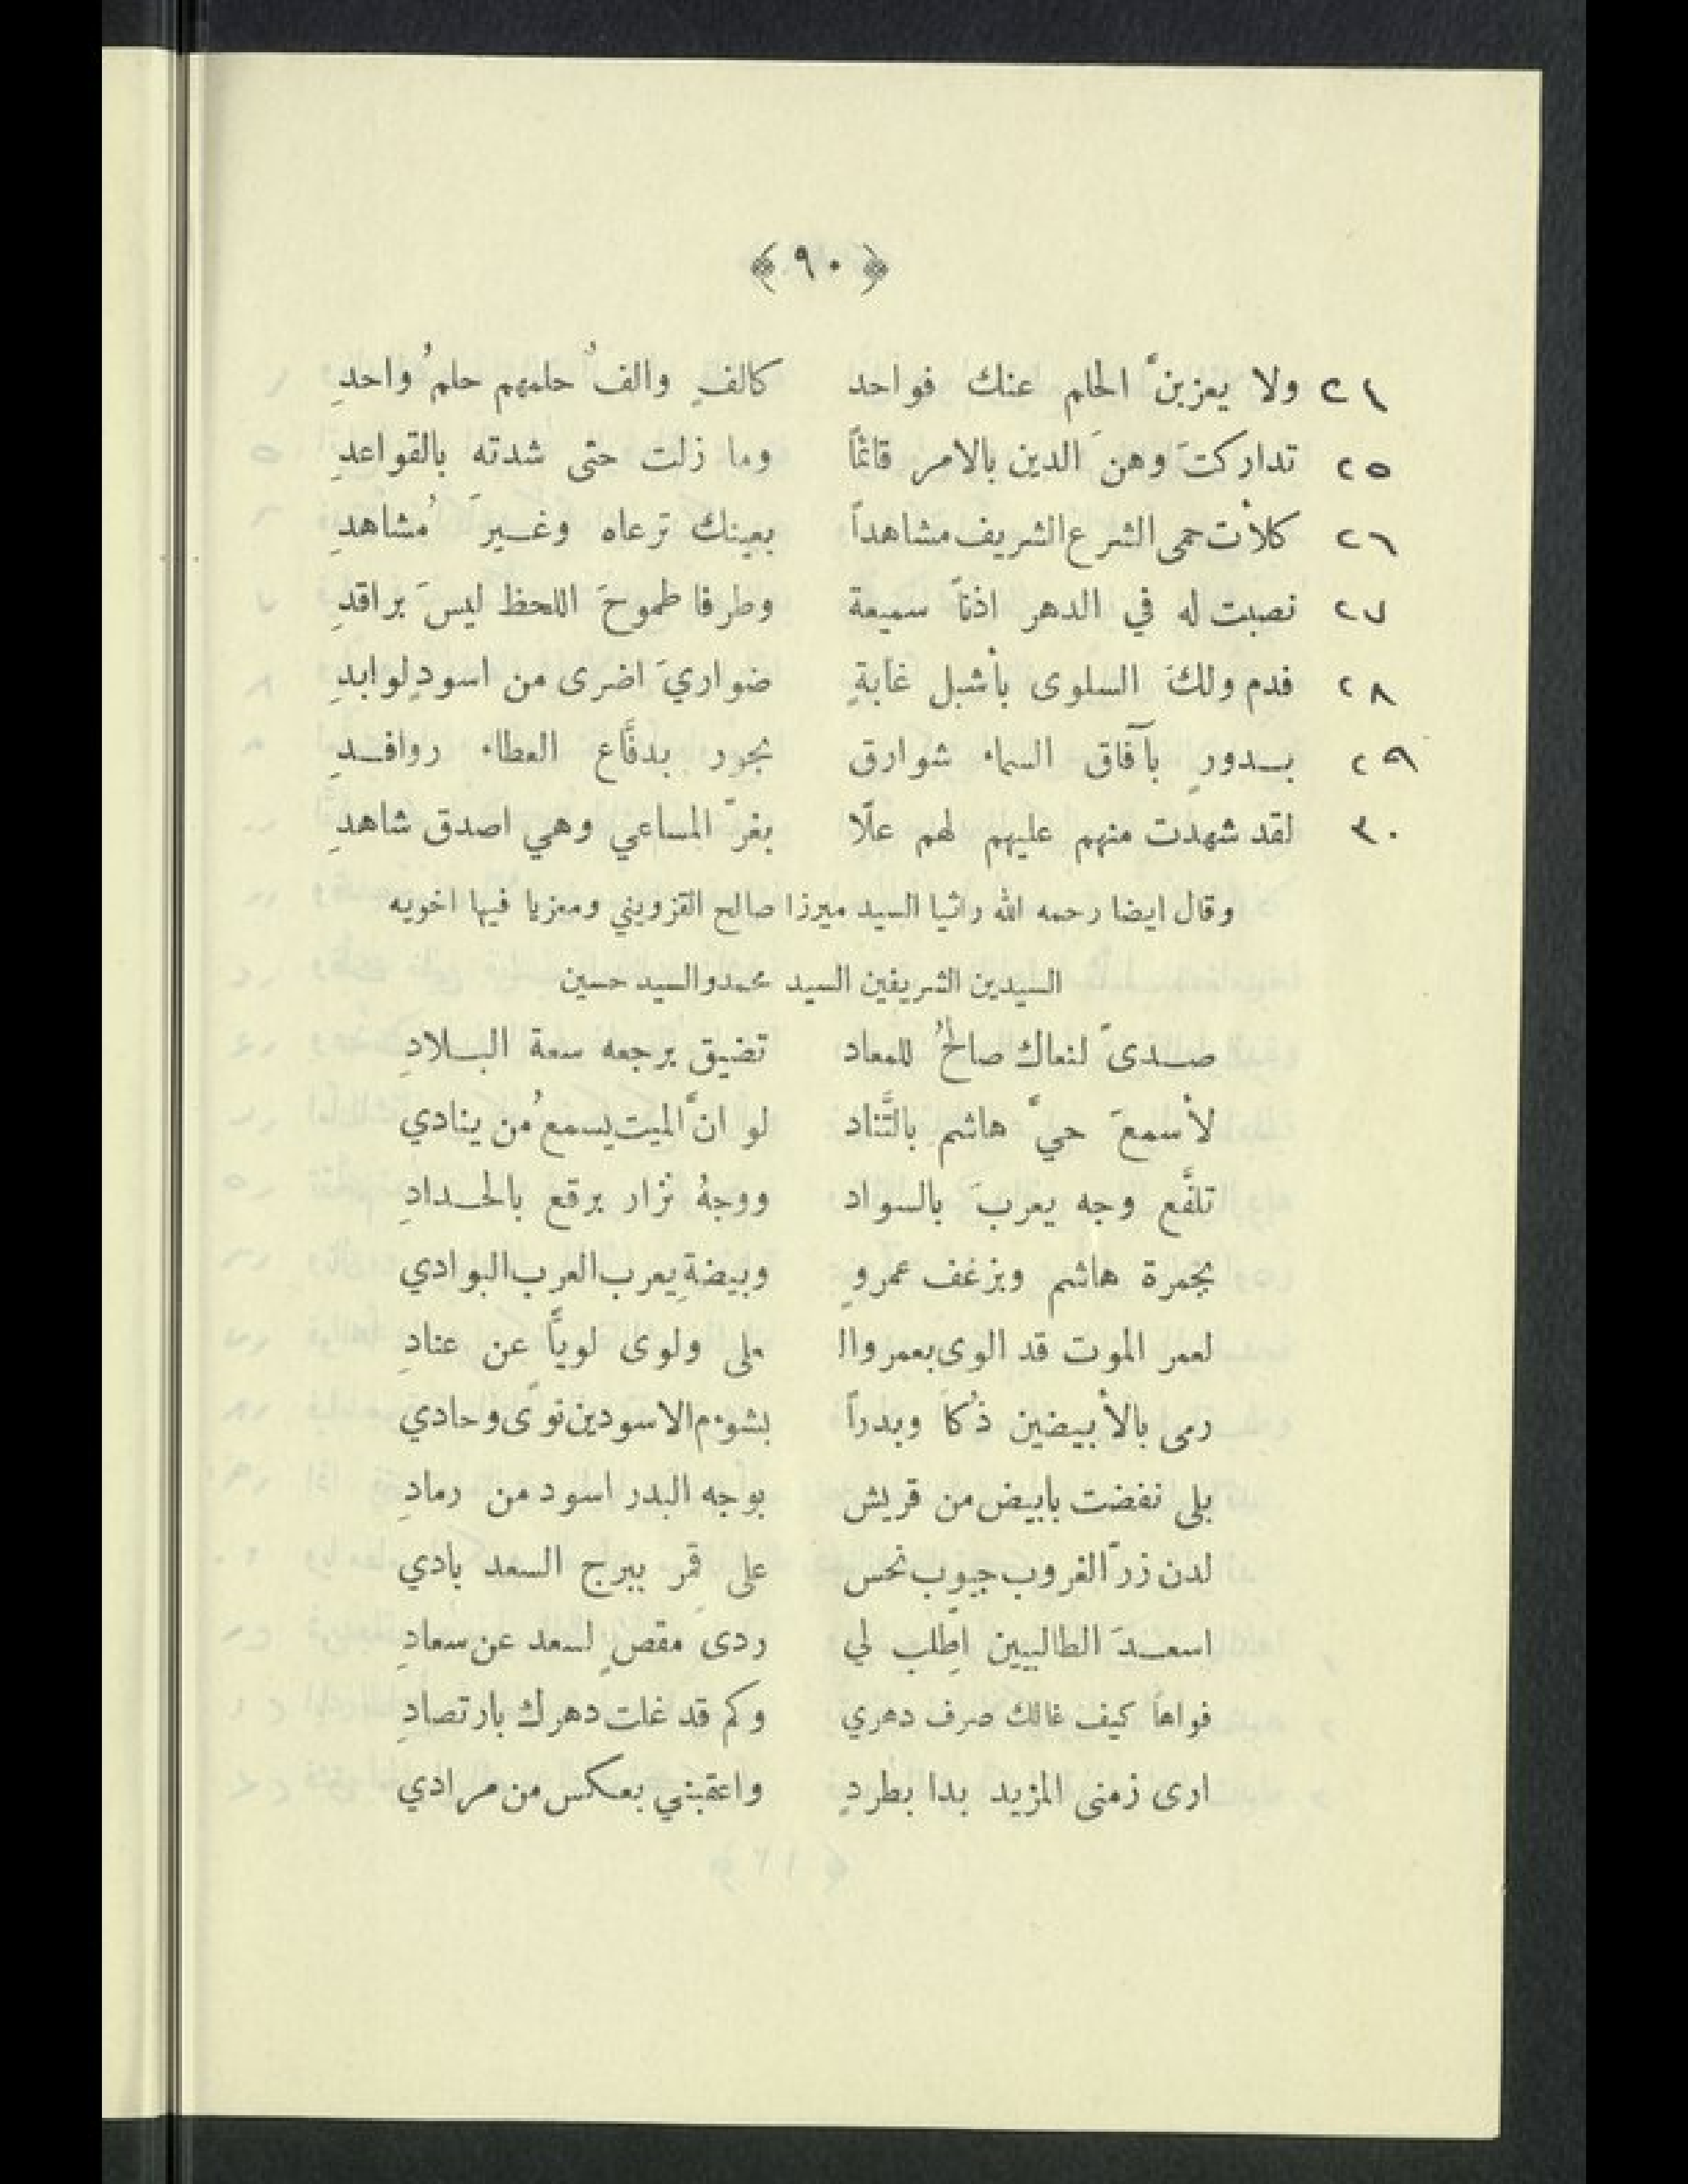 ﴿ ٩٠ ﴾
٢١ ولا يعزبنّ الحلم عنك فواحد كالفٍ والفُ حلمهم حلمُ واحدِ
٢٥ تداركتَ وهنَ الدين بالامر قائماً وما زلت حتى شدته بالقواعدِ
٢٦ كلأت حمى الشرع الشريف مشاهداً بعينك ترعاه وغيرَ مُشاهدِ
٢٧ نصبت له في الدهر اذناً سميعة وطرفا طموحَ اللحظ ليسَ براقدِ
٢٨ فدم ولك السلوى بأشبل غابةٍ ضواريَ اضرى من اسودٍ لوابدِ
٢٩ بدورٍ بآفاق السماء شوارق بجور بدفَّاع العطاء روافدِ
٣٠ لقد شهدت منهم عليهم لهم علًا بغرّ المساعي وهي اصدق شاهدِ
وقال ايضا رحمه الله راثيا السيد ميرزا صالح القزويني ومعزيا فيها اخويه
السيدين الشريفين السيد محمد والسيد حسين
صدىً لنعاك صالحُ للمعاد تضيق برجعه سعة البلادِ
لأسمعَ حيّ هاشم بالتَّناد لو انَّ الميت يسمعُ من ينادي
تلفَّع وجه يعربَ بالسواد ووجهُ نزار برقع بالحدادِ
بجمرة هاشم وبزغف عمروٍ وبيضةِ يعرب العرب البوادي
لعمر الموت قد الوى بعمر والـ ـعلى ولوى لويًّا عن عنادِ
رمى بالأبيضين ذُكاً وبدراً بشوءم الاسودين نوًى وحادي
بلى نفضت بابيض من قريش بوجه البدر اسود من رمادِ
لدن زرّ الغروب جيوب نحس على قمرٍ ببرج السعد بادي
اسعدَ الطالبيين اطِّلب لي ردى مقصٍ لسعد عن سعادِ
فواهاً كيف غالك صرف دهري وكم قد غلت دهرك بارتصادِ
ارى زمنى المزيد بدا بطردٍ واعقبني بعكس من مرادي